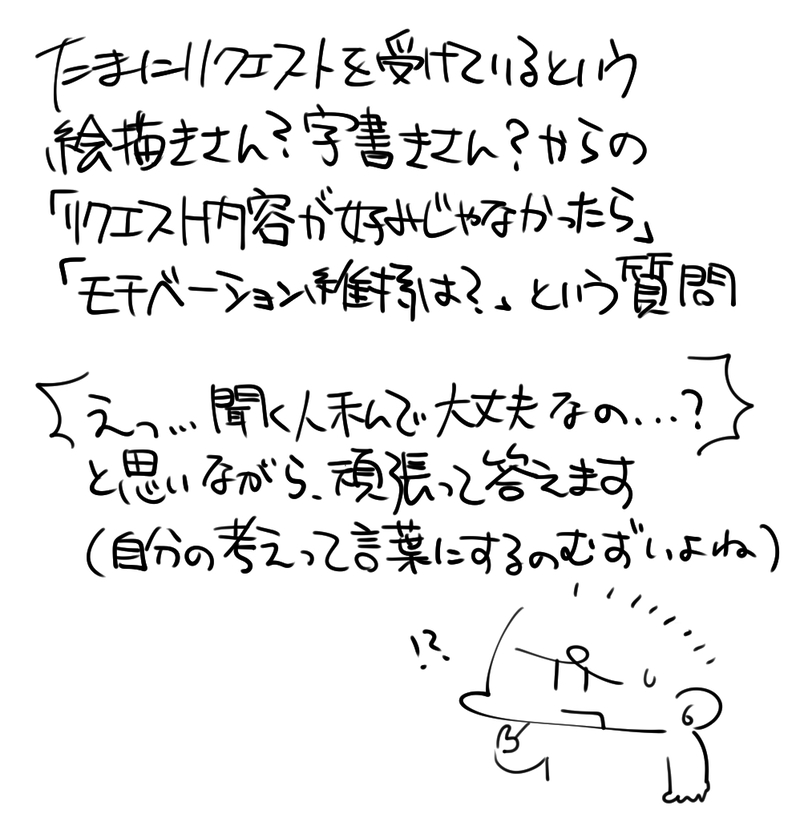 たまにリクエストを受けているという
絵描きさん?字書きさん?からの
「リクエスト内容が好みじゃなかったら」
「モチベーション維持は?」という質問
えっ…聞く人私んで大丈夫なの…?
と思いながら、頑張って答えます
(自分の考えって言葉にするのむずいよね)
!?